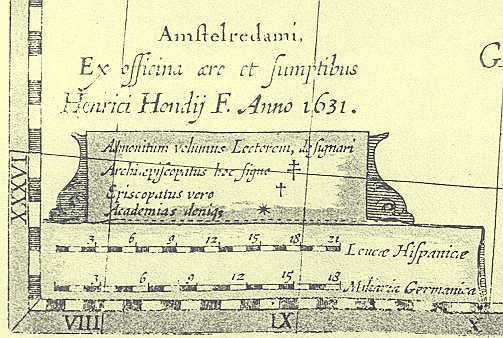 Amstelredami,
Ex officina ære et sumptibus
Henrici Hondij F. Anno 1631.
G
Admonitum volumus Lectorem, designari
Archiepiscopatus hoc signo ‡
Episcopatus vero †
Academias deniq; *
XXXVI
3 6 9 12 15 18 21
Leucæ Hispanicæ
3 6 9 12 15 18
Miliaria Germanica
VIII IX X